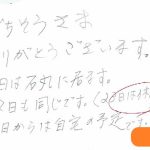 ごちそうさま
りがとうございます。
日は石丸に居ます。
2日も同じです。(28日は休
日からは自宅の予定です。